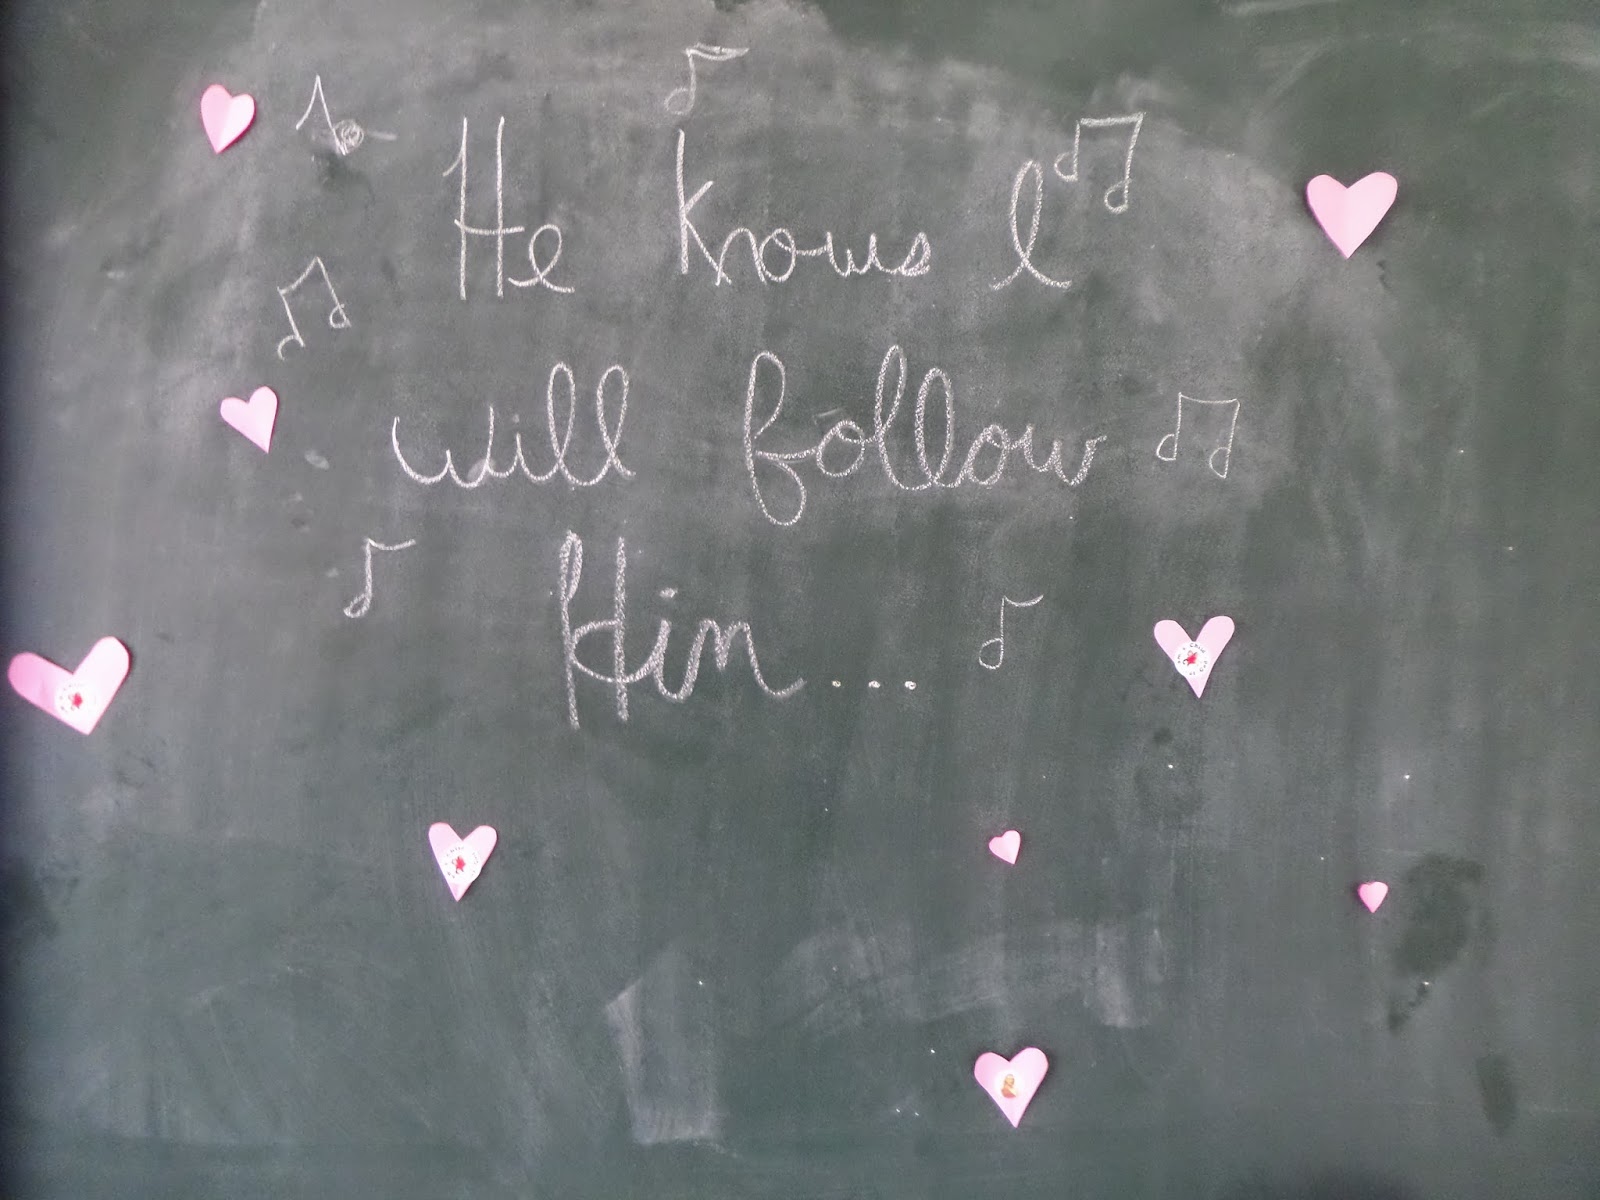 He knows I
will follow
Him...